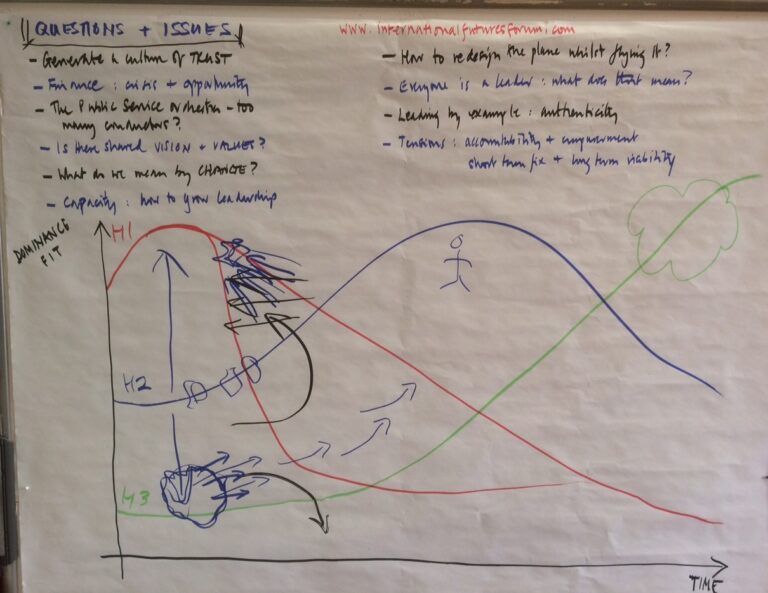 QUESTIONS + ISSUES
- Generate a culture of TRUST
- Finance : crisis + opportunity
- The Public Service orchestra - too
many conductors?
- Is there shared VISION + VALUES?
- What do we mean by CHANGE?
- Capacity : how to grow leadership
www.internationalfuturesforum.com
- How to redesign the plane whilst flying it?
- Everyone is a leader : what does that mean?
- Leading by example : authenticity
- Tensions : accountability + empowerment
short term fix + long term viability
DOMINANCE
FIT
H1
H2
H3
TIME